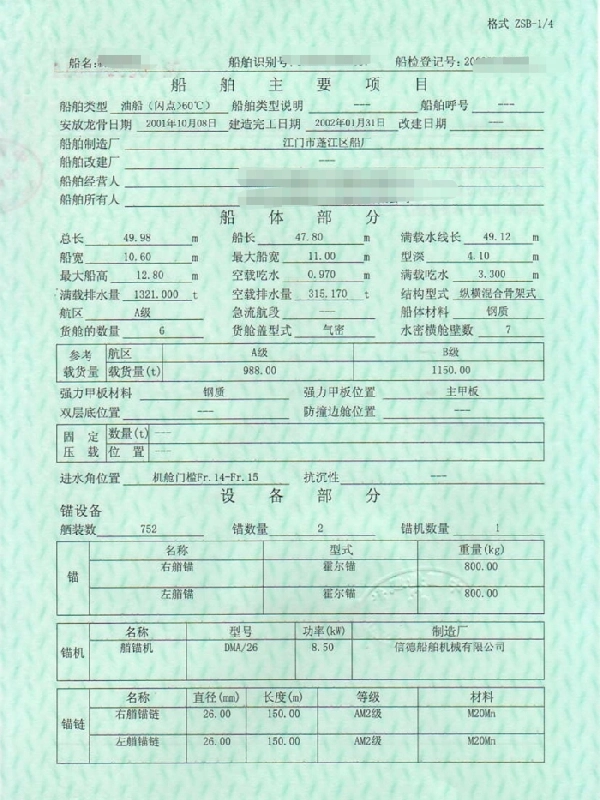 格式 ZSB-1/4
船名: 船舶识别号: 船检登记号: 200
船舶主要项目
船舶类型 油船(闪点>60℃) 船舶类型说明 --- 船舶呼号 ---
安放龙骨日期 2001年10月08日 建造完工日期 2002年01月31日 改建日期 ---
船舶制造厂 江门市蓬江区船厂
船舶改建厂 ---
船舶经营人
船舶所有人
船体部分
总长 49.98 m 船长 47.80 m 满载水线长 49.12 m
船宽 10.60 m 最大船宽 11.00 m 型深 4.10 m
最大船高 12.80 m 空载吃水 0.970 m 满载吃水 3.300 m
满载排水量 1321.000 t 空载排水量 315.170 t 结构型式 纵横混合骨架式
航区 A级 急流航段 --- 船体材料 钢质
货舱的数量 6 货舱盖型式 气密 水密横舱壁数 7
参考载货量 航区 A级 B级
载货量(t) 988.00 1150.00
强力甲板材料 钢质 强力甲板位置 主甲板
双层底位置 --- 防撞边舱位置 ---
固定压载 数量(t) ---
位置 ---
进水角位置 机舱门槛Fr.14-Fr.15 抗沉性 ---
设备部分
锚设备
舾装数 752 锚数量 2 锚机数量 1
锚 名称 型式 重量(kg)
右艏锚 霍尔锚 800.00
左艏锚 霍尔锚 800.00
锚机 名称 型号 功率(kW) 制造厂
艏锚机 DMA/26 8.50 信德船舶机械有限公司
锚链 名称 直径(mm) 长度(m) 等级 材料
右艏锚链 26.00 150.00 AM2级 M20Mn
左艏锚链 26.00 150.00 AM2级 M20Mn